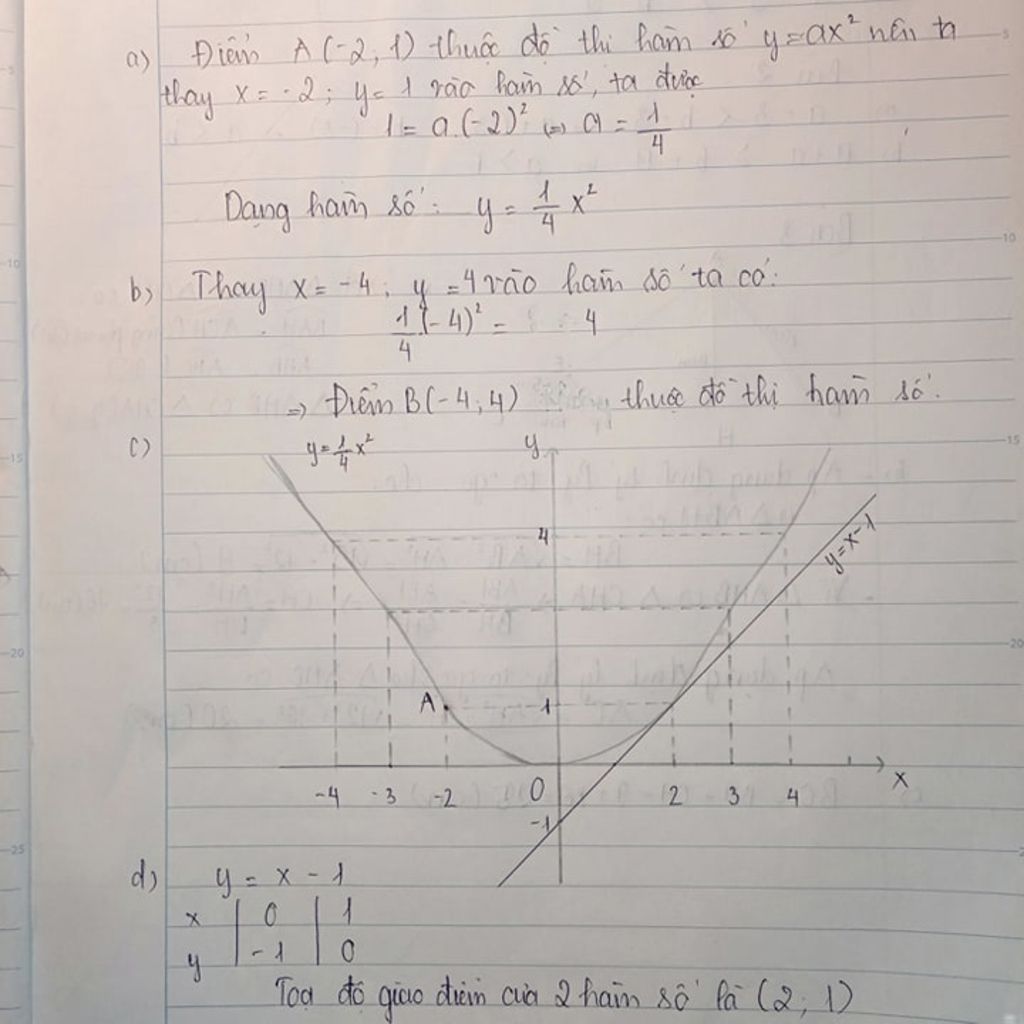 a) Điểm A(-2; 1) thuộc đồ thị hàm số y=ax² nên ta
thay x = -2; y= 1 vào hàm số, ta được
1 = a.(-2)² <=> a = 1/4
Dạng hàm số: y = 1/4 x²
b) Thay x = -4; y = 4 vào hàm số ta có:
1/4 (-4)² = 4
=> Điểm B(-4; 4) thuộc đồ thị hàm số.
c) y = 1/4 x² y
4
y = x - 1
A 1
-4 -3 -2 0 2 3 4 x
-1
d) y = x - 1
x | 0 | 1
y | -1 | 0
Toạ độ giao điểm của 2 hàm số là (2; 1)